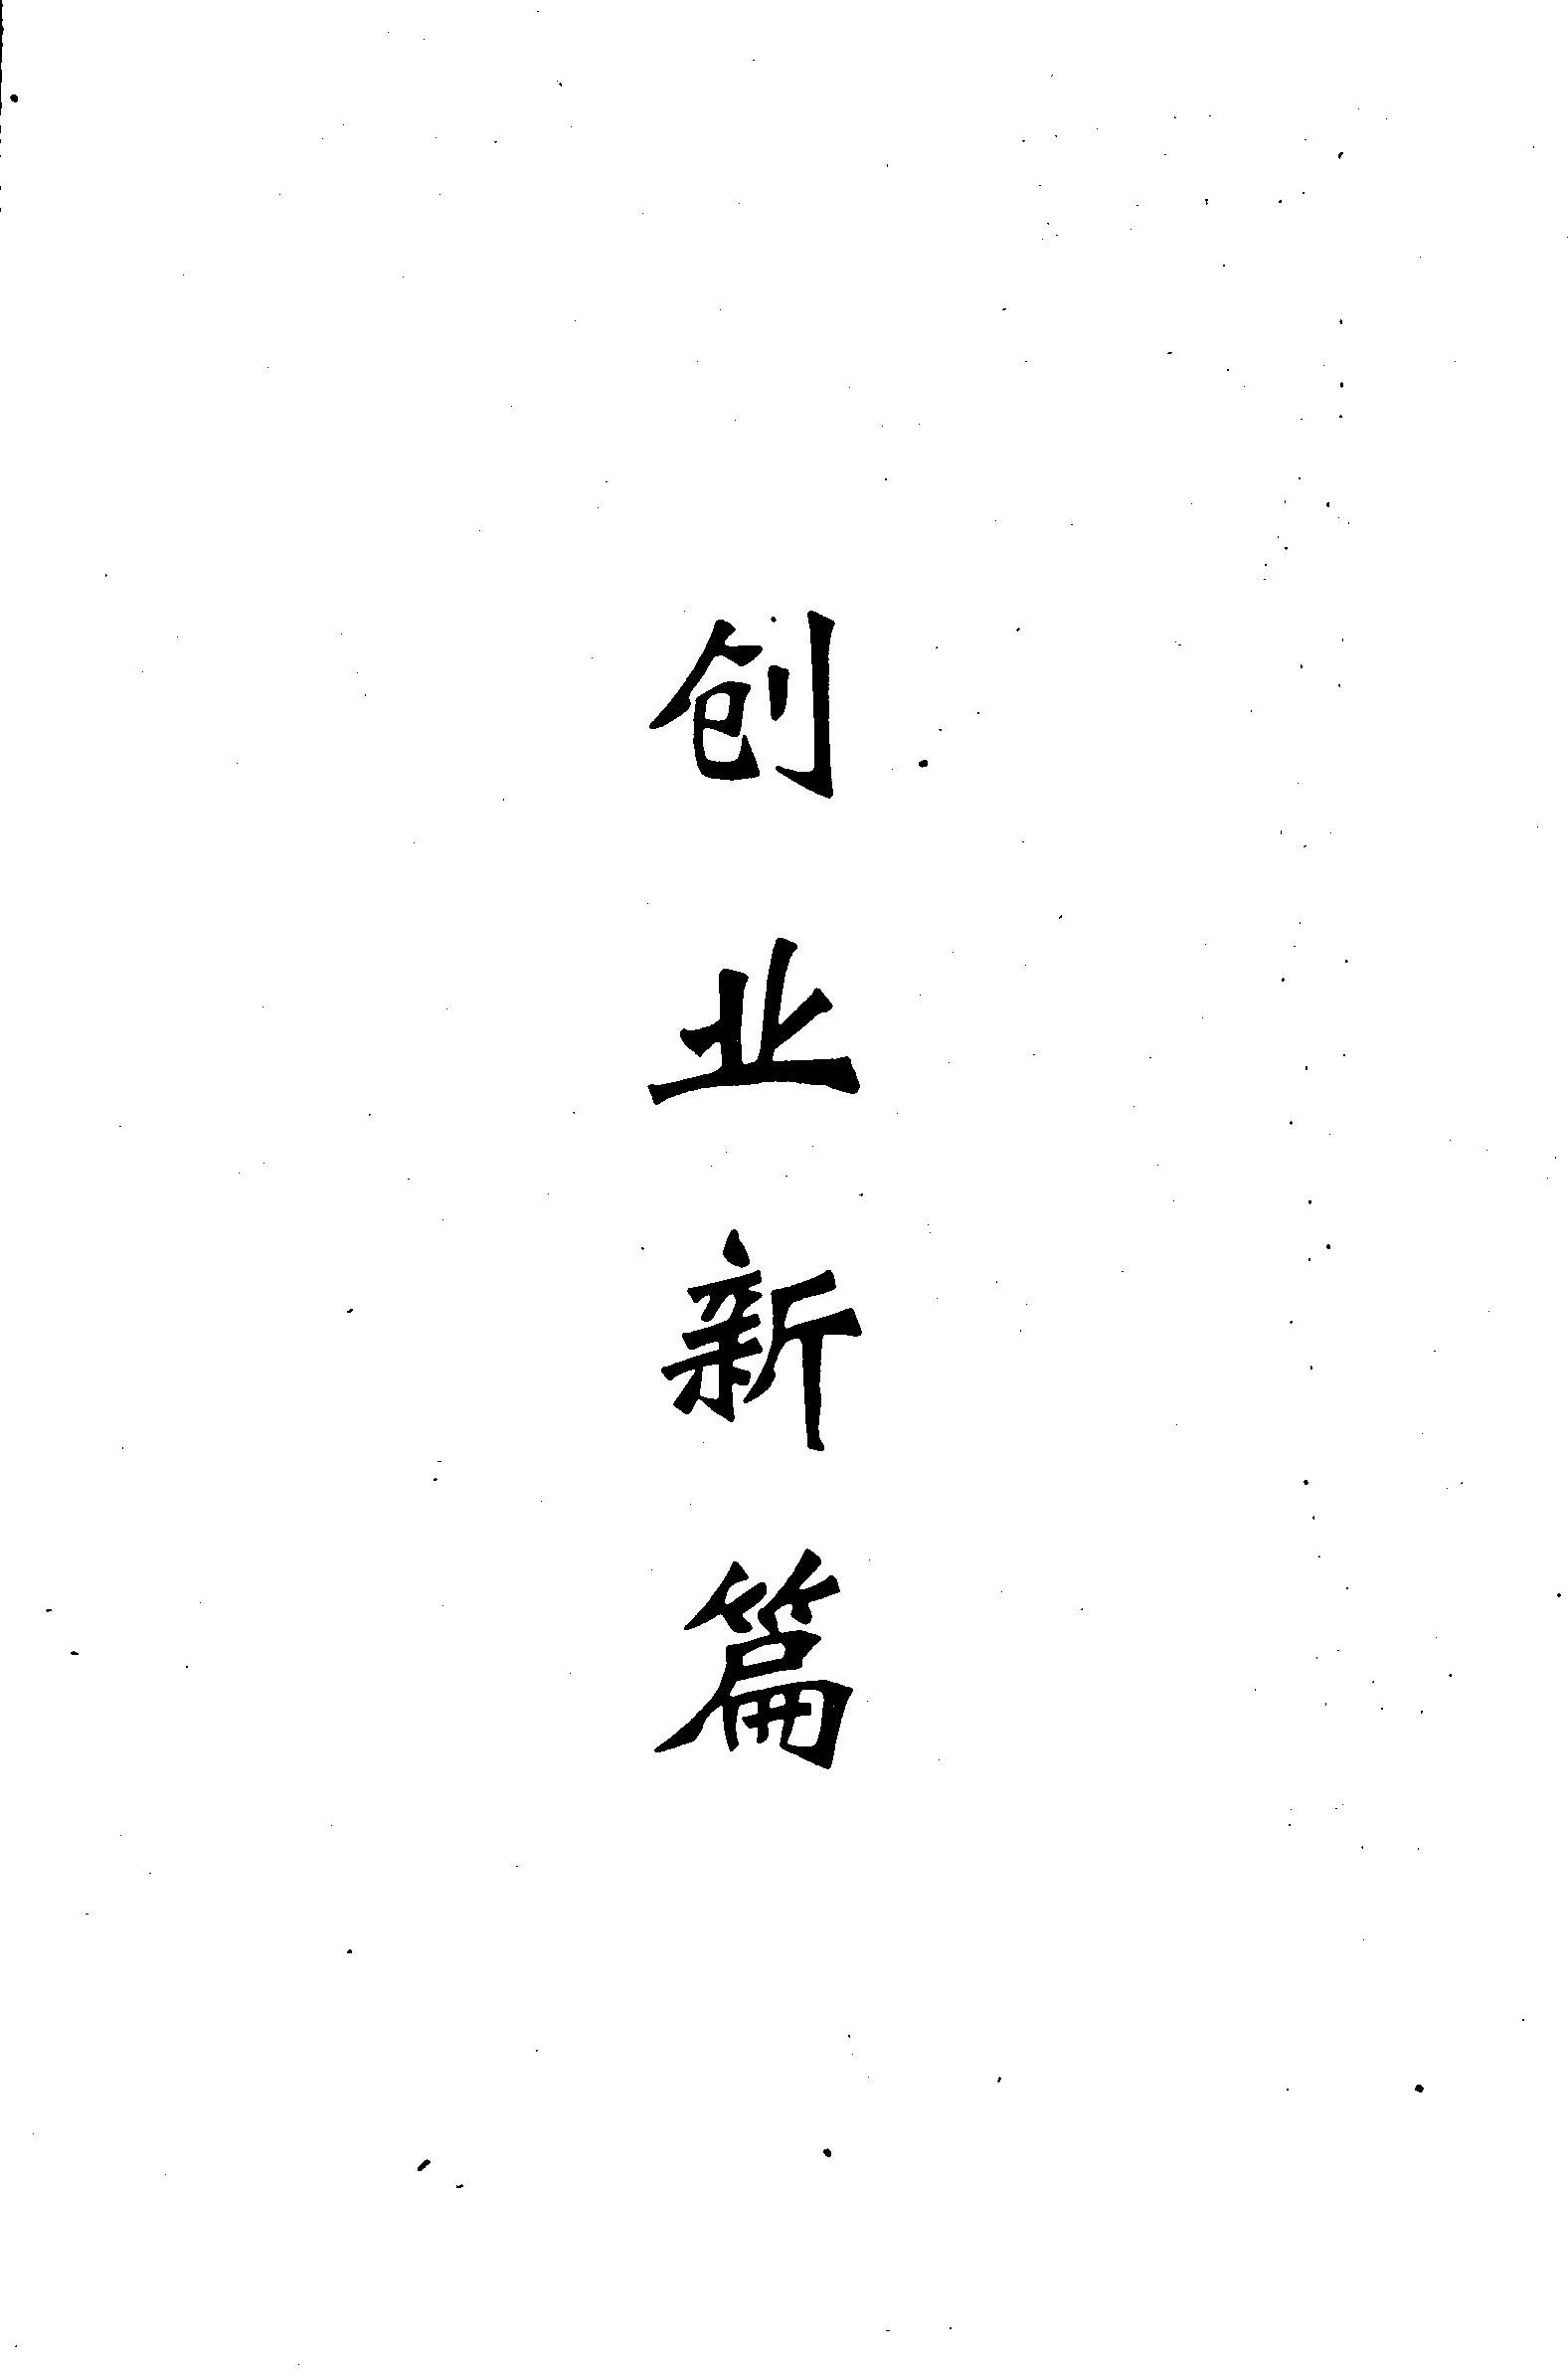 创业新篇